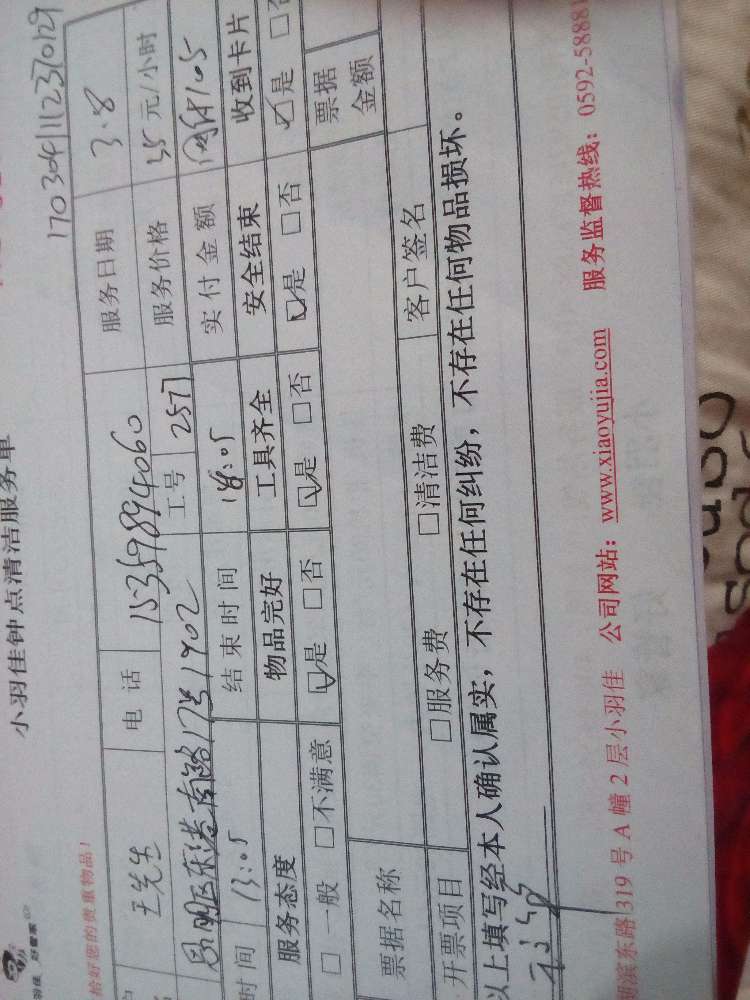 小羽佳钟点清洁服务单
1703041112370129
拾好您的贵重物品！
王先生 电话 15359894060 服务日期 3.8
东港南路17号1902 工号 2577 服务价格 35元/小时
时间 13:05 结束时间 18:05 实付金额 105
服务态度 物品完好 工具齐全 安全结束 收到卡片
□一般 □不满意 ☑是 □否 ☑是 □否 ☑是 □否 ☑是 □否
票据名称 票据金额
开票项目 □服务费 □清洁费 客户签名
以上填写经本人确认属实，不存在任何纠纷，不存在任何物品损坏。
湖滨东路319号A幢2层小羽佳 公司网站：www.xiaoyujia.com 服务监督热线：0592-58881